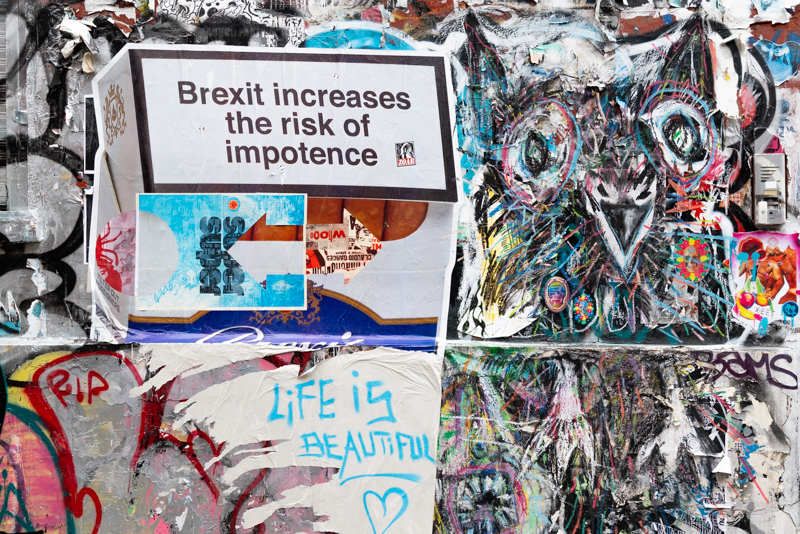 Brexit increases
the risk of
impotence
RIP
LiFE iS
BEAUTiFUL
CLAUDIO GARCES